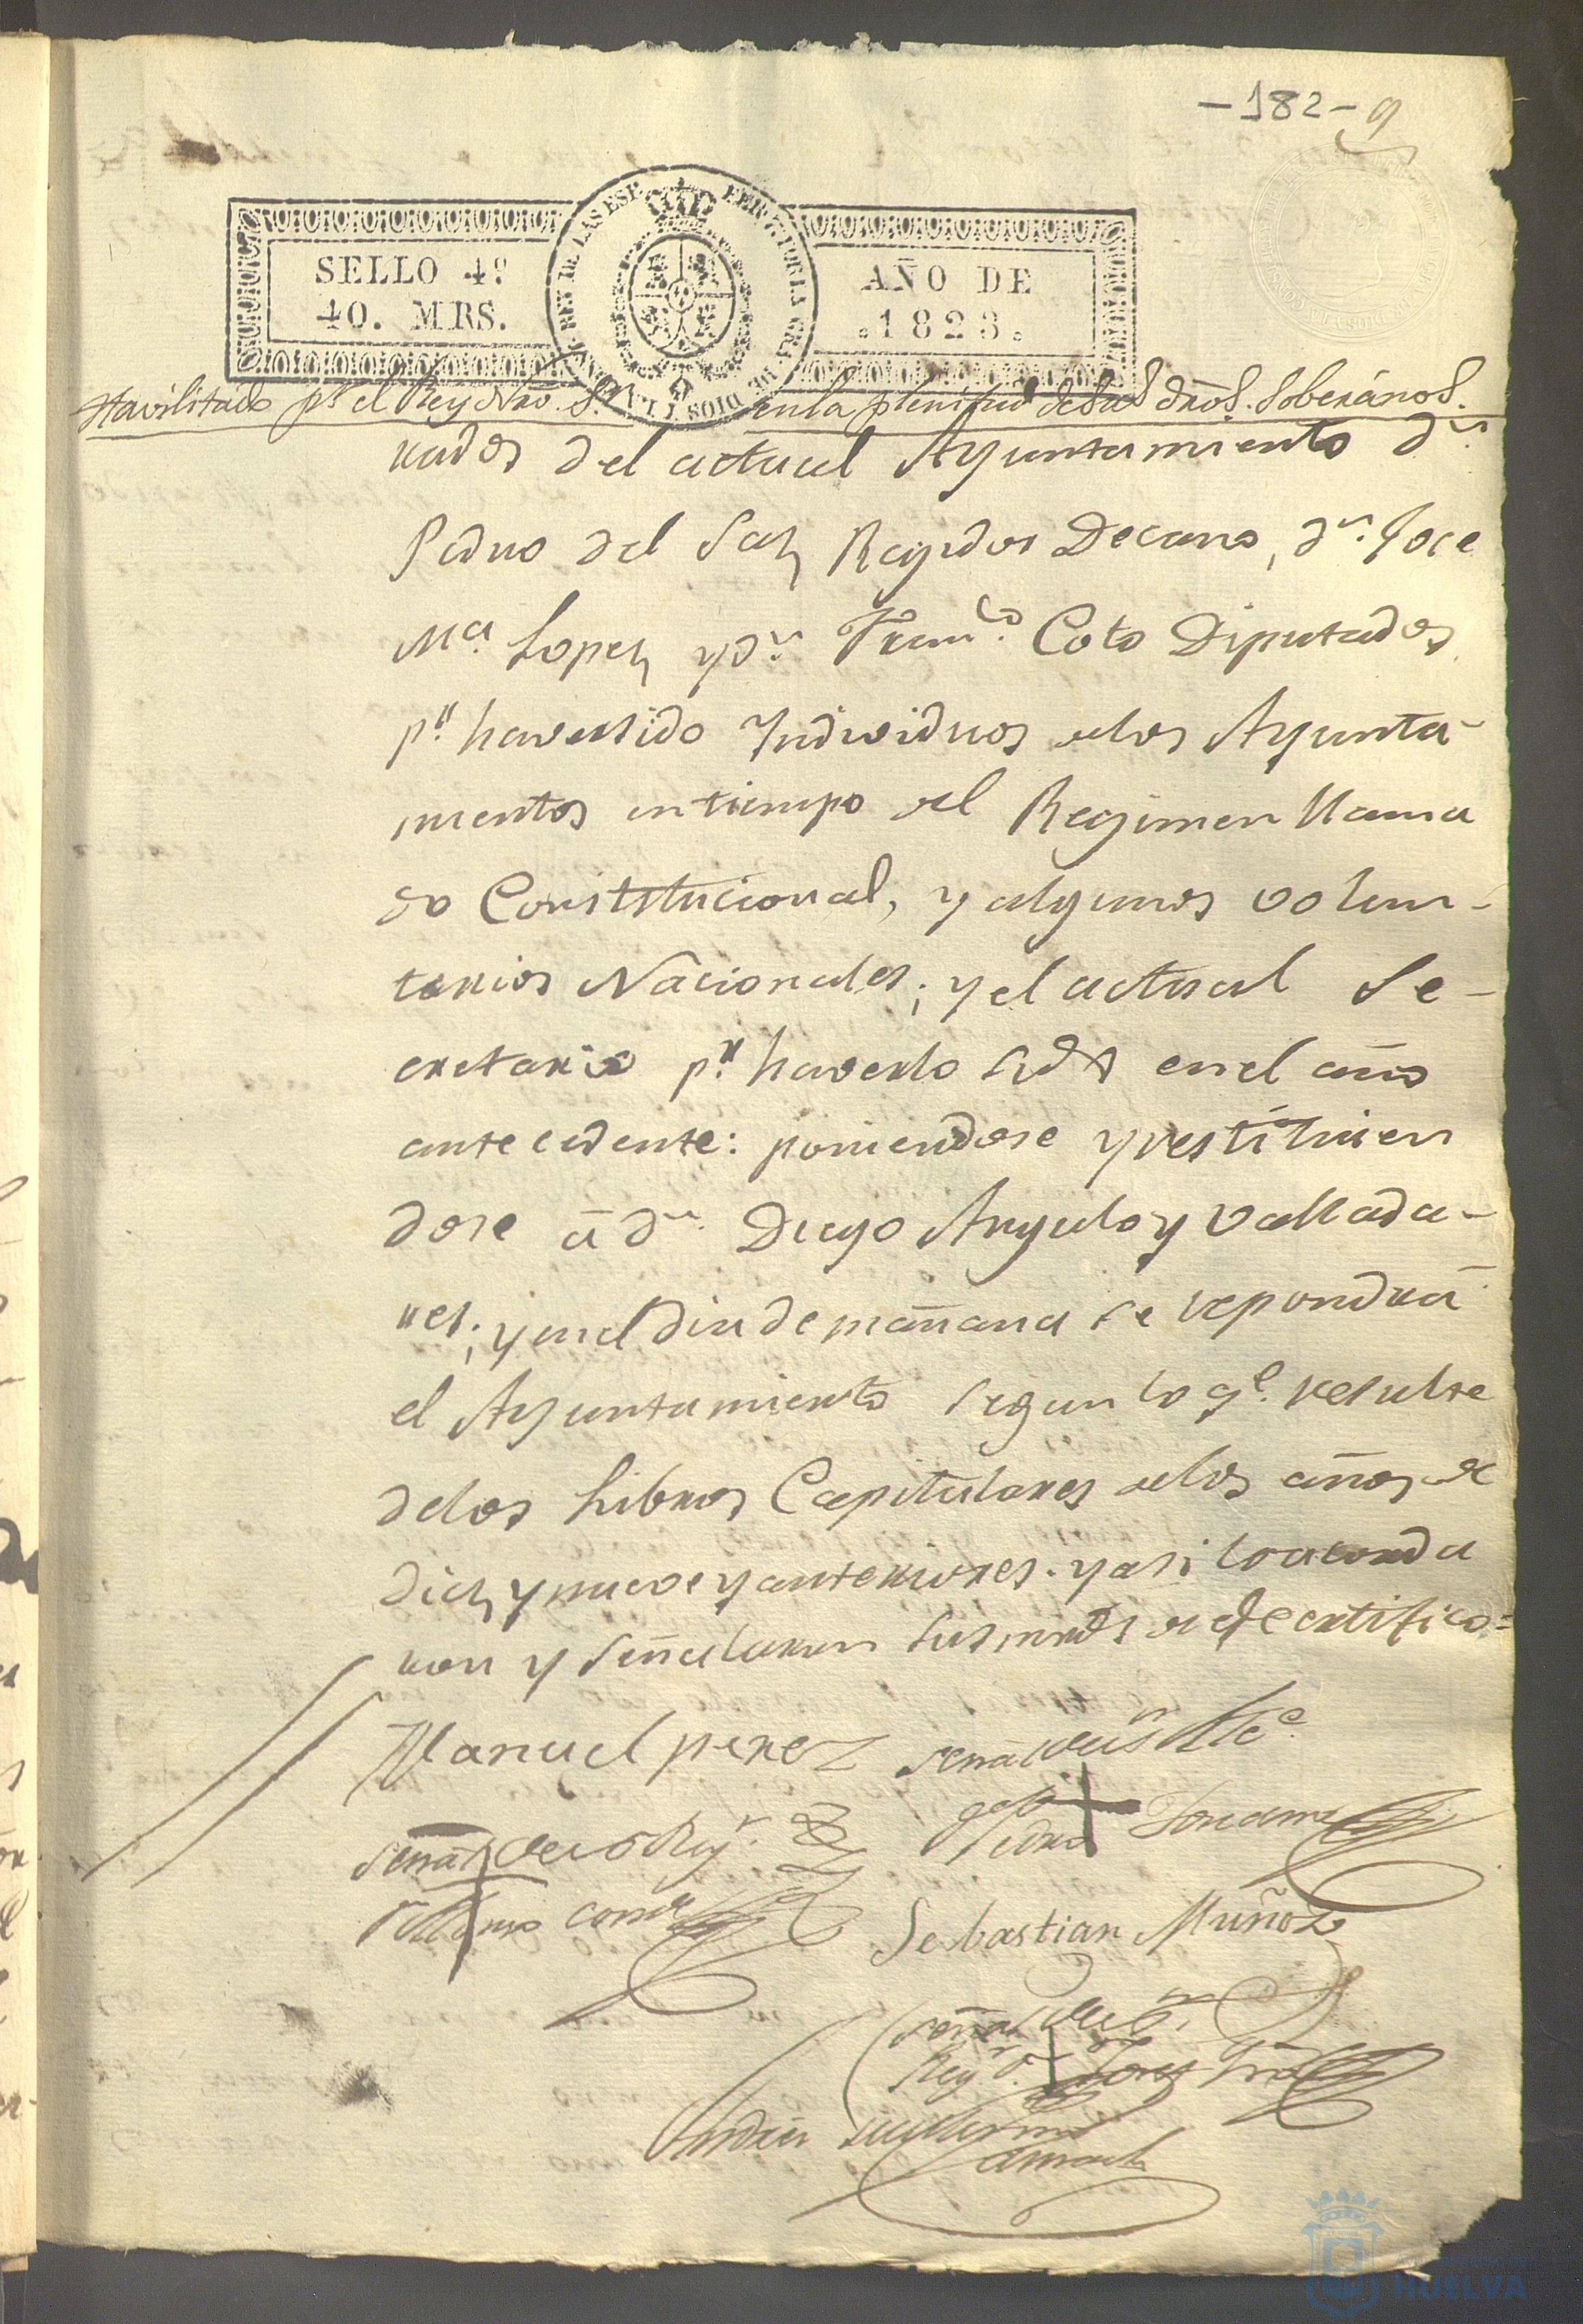 -182- 9
SELLO 4º
40. MRS.
AÑO DE
.1823.
Havilitado pr el Rey Nrō. Sr. en la plenitud de sus dr̄os. Soberános.
rados del actual Ayuntamiento dn.
Pedro del Saz Regidor Decano, dn. Jose
Ma. Lopez y dn. Franco. Coto Diputados
pr. haver sido Yndividuos delos Ayunta-
mientos en tiempo del Regimen llama
do Constitucional, y algunos volun-
tarios Nacionales; y el actual Se-
cretario pr. haverlo sido en el año
antecedente: poniendose y restituien
dose ā dn. Diego Angulo y Vallada-
res; y en el dia de mañana se repondrā
el Ayuntamiento segun lo qe. resulte
delos Libros Capitulares delos años de
diez y nueve y anteriores. y asi lo acorda
ron y señalaron sus mrds de qe certifico =
Manuel perez
señal del Sr Alce.
Pedro
señal del Regr.
Sebastian Muñoz
señal del Sr.
Regr.
HUELVA